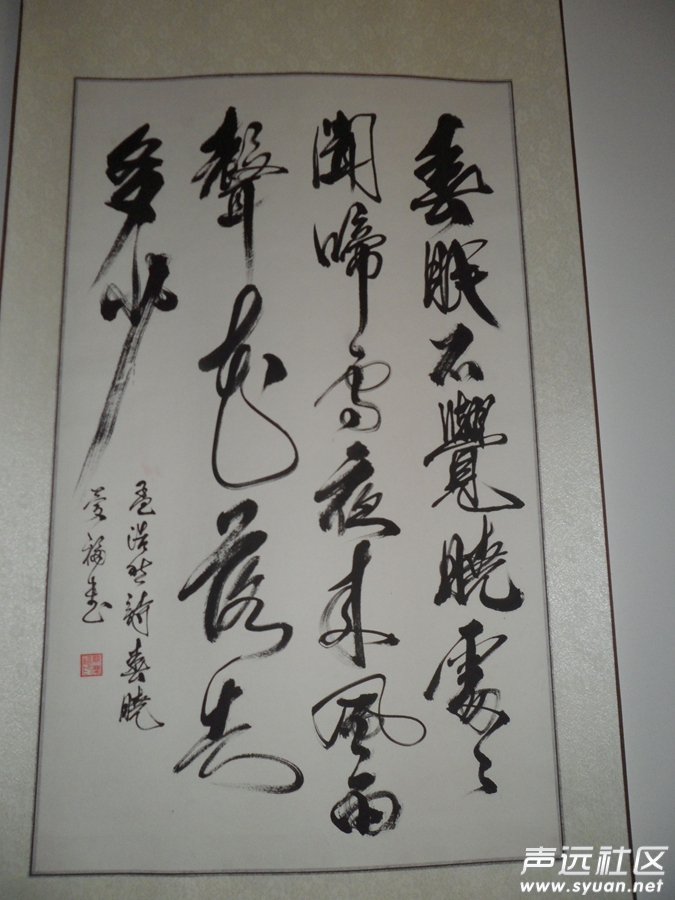 春眠不覺曉處々
聞啼鳥夜来風雨
聲花落知
多少
孟浩然詩春曉
福書
声远社区
www.syuan.net